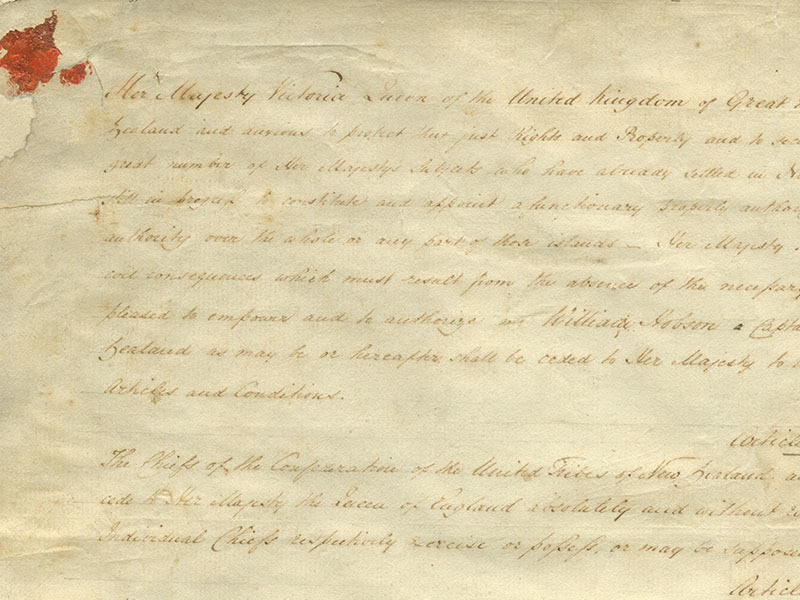 Her Majesty Victoria Queen of the United Kingdom of Great
Zealand and anxious to protect their just Rights and Property and to secu
great number of Her Majesty's Subjects who have already settled in Ne
still in progress to constitute and appoint a functionary properly author
authority over the whole or any part of those islands — Her Majesty
evil consequences which must result from the absence of the necessary
pleased to empower and to authorize me William Hobson a Capta
Zealand as may be or hereafter shall be ceded to Her Majesty to
Articles and Conditions.
Article
The Chiefs of the Confederation of the United Tribes of New Zealand a
cede to Her Majesty the Queen of England absolutely and without
Individual Chiefs respectively exercise or possess, or may be suppose
Articl